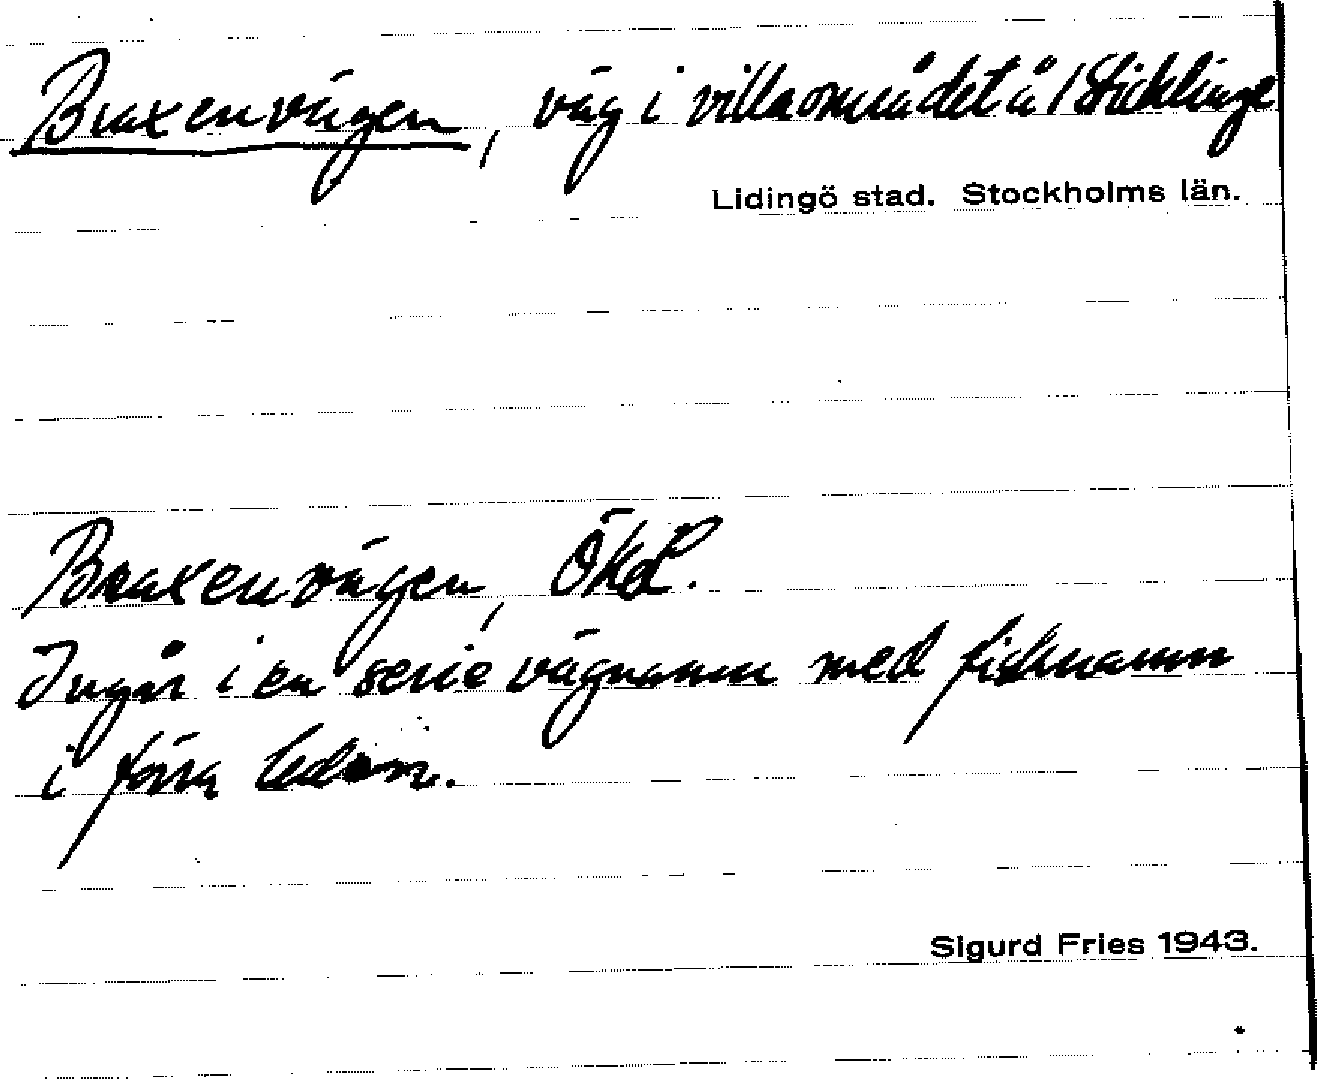 Braxenvägen, väg i villaområdet å 1 Sticklinge
Lidingö stad. Stockholms län.
Braxenvägen, ÖKL.
Ingår i en serie vägnamn med fisknamn
i förra leden.
Sigurd Fries 1943.